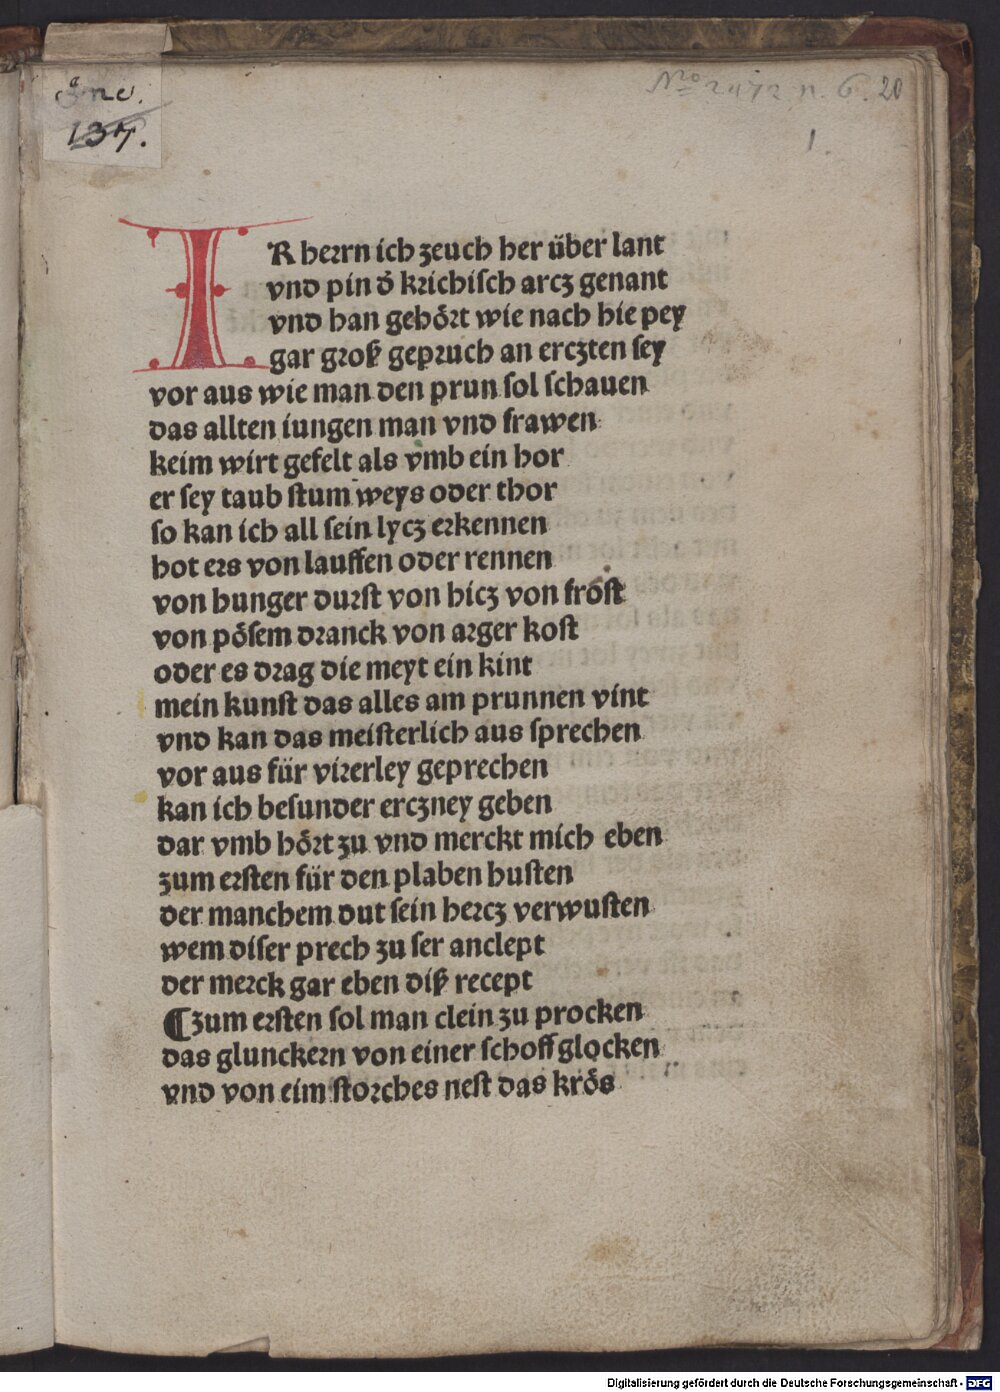 Inc.
137.
Nro 2472 n. 6. 20
1.
IR herrn ich zeuch her über lant
vnd pin d̕ krichisch arcz genant
vnd han gehört wie nach hie pey
gar groß gepruch an erczten sey
vor aus wie man den prun sol schauen
das allten iungen man vnd frawen
keim wirt gefelt als vmb ein hor
er sey taub stum weys oder thor
so kan ich all sein lycz erkennen
hot ers von lauffen oder rennen
von hunger durst von hicz von fröst
von pösem dranck von arger kost
oder es drag die meyt ein kint
mein kunst das alles am prunnen vint
vnd kan das meisterlich aus sprechen
vor aus für virerley geprechen
kan ich besunder erczney geben
dar vmb hört zu vnd merckt mich eben
zum ersten für den plaben husten
der manchem dut sein hercz verwusten
wem diser prech zu ser anclept
der merck gar eben diß recept
⸿zum ersten sol man clein zu procken
das glunckern von einer schoff glocken
vnd von eim storches nest das krös
Digitalisierung gefördert durch die Deutsche Forschungsgemeinschaft - DFG